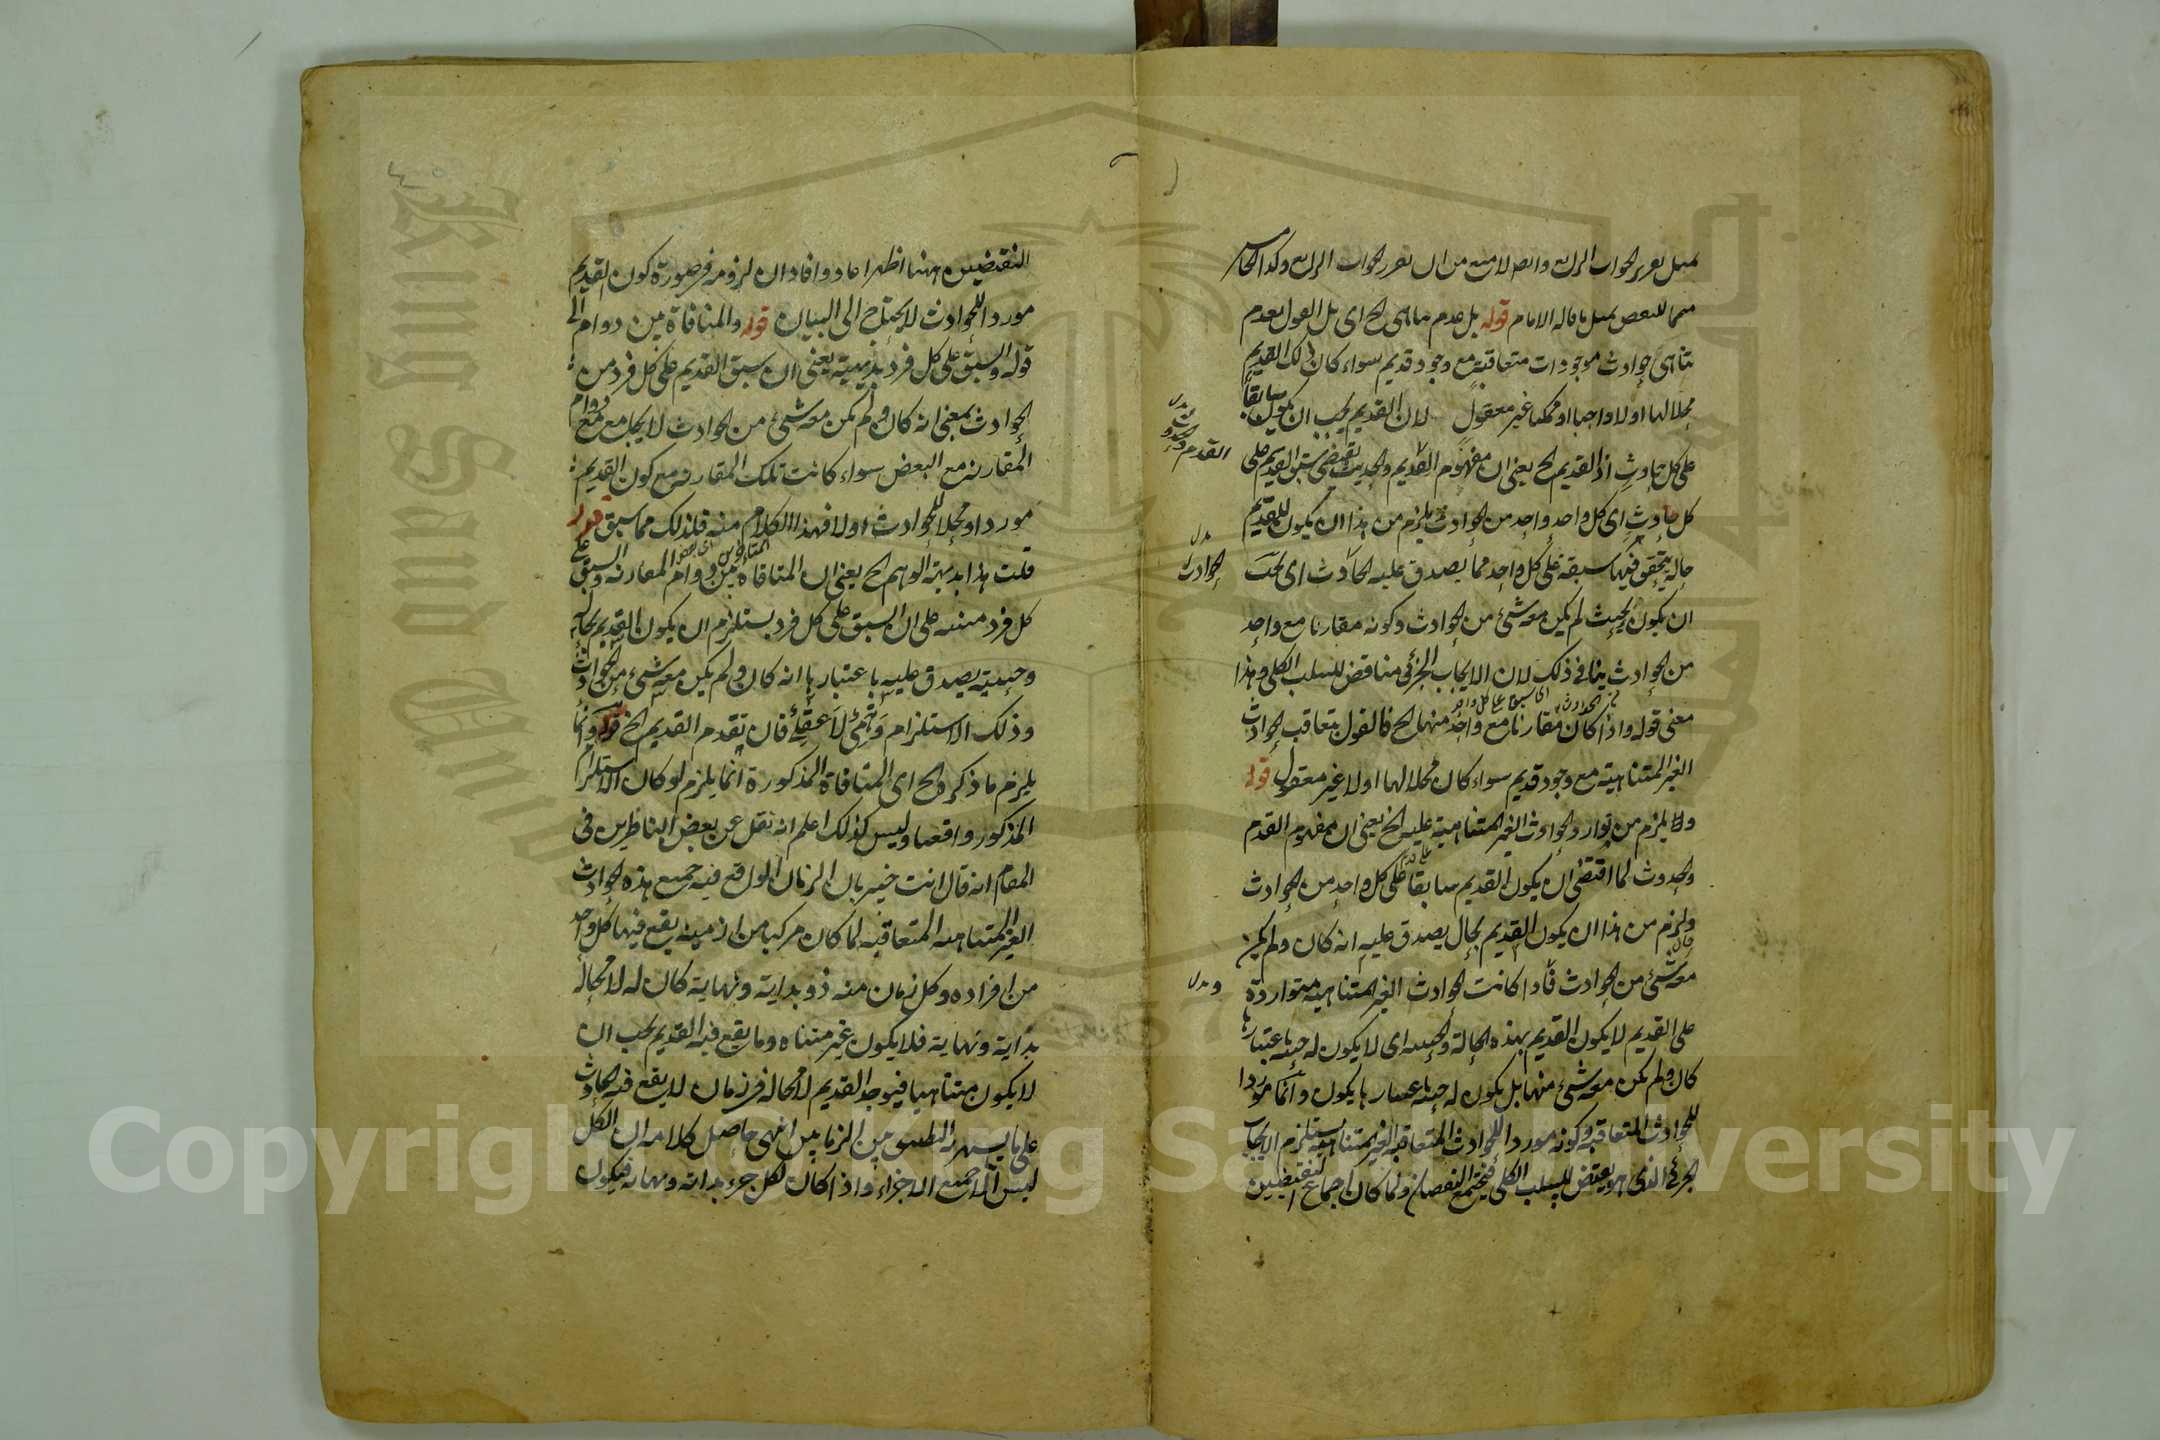 بمثل تقرير الجواب الرابع
قوله بل عدم تناهى الخ اى بل القول بعدم
تناهى حوادث موجودات متعاقبة مع وجود قديم سواء كان ذلك القديم
محلا لها اولا واجبا او ممكنا غير معقول لان القديم يجب ان يكون سابقا
على كل حادث اذ القديم الخ يعنى ان مفهوم القديم والحديث يقتضى سبق القديم على
كل حادث اى كل واحد واحد من الحوادث يلزم من هذا ان يكون للقديم
حالة يتحقق فيها سبقه على كل واحد مما يصدق عليه الحادث اى يجب
ان يكون بحيث لم يكن معه شئ من الحوادث وكونه مقارنا مع واحد
من الحوادث ينافى ذلك لان الايجاب الجزئى مناقض للسلب الكلى وهذا
معنى قوله واذا كان مقارنا مع واحد منها الخ فالقول بتعاقب الحوادث
الغير المتناهية مع وجود قديم سواء كان محلا لها اولا غير معقول قوله
ولا يلزم من توارد الحوادث الغير المتناهية عليه الخ يعنى ان مفهوم القدم
والحدوث لما اقتضى ان يكون القديم سابقا على كل واحد من الحوادث
ولزم من هذا ان يكون القديم بحال يصدق عليه انه كان ولم يكن
معه شئ من الحوادث فاذا كانت الحوادث الغير المتناهية متواردة
على القديم لا يكون القديم بهذه الحالة والحيثية اى لا يكون له حيثية باعتبارها
كان ولم يكن معه شئ منها بل يكون له حيثية باعتبارها يكون دائما موردا
للحوادث المتعاقبة وكونه موردا للحوادث المتعاقبة الغير المتناهية يستلزم الايجاب
الجزئى الذى هو نقيض للسلب الكلى فيجتمع النقيضان ولما كان اجتماع النقيضين
القدم والحدوث
بدل
الحوادث
بدل
النقيضين
موردا للحوادث لا يحتاج الى البيان قوله والمنافاة بين دوام الخ
قوله والسبق على كل فرد بديهية يعنى ان سبق القديم على كل فرد من
الحوادث بمعنى انه كان ولم يكن معه شئ من الحوادث لا يجامع مع دوام
المقارنة مع البعض سواء كانت تلك المقارنة مع كون القديم
موردا ومحلا للحوادث اولا فهذا الكلام منه فذلك مما سبق قوله
قلت هذا بديهة الوهم الخ يعنى ان المنافاة بين دوام المقارنة والسبق على
كل فرد مبنية على ان السبق على كل فرد يستلزم ان يكون القديم بحالة
وحيثية يصدق عليه باعتبارها انه كان ولم يكن معه شئ من الحوادث
وذلك الاستلزام وهمى لا عقلى فان تقدم القديم الخ قوله وانما
يلزم ما ذكر الخ اى المنافاة المذكورة انما يلزم لو كان الاستلزام
المذكور واقعا وليس كذلك اعلم انه نقل عن بعض الناظرين فى
المقام انه قال انت خبير بان الزمان الواقع فيه جميع هذه الحوادث
الغير المتناهية المتعاقبة لما كان مركبا من ازمنة يقع فيها كل واحد
من افراده وكل زمان منه ذو بداية ونهاية كان له لا محالة
بداية ونهاية فلا يكون غير متناه وما يقع فيه القديم يجب ان
لا يكون متناهيا فيوجد القديم لا محالة فى زمان لا يقع فيه الحادث
على ما يشهد به التطبيق بين الزمانين انتهى حاصل كلامه ان الكل
ليس الا جميع الاجزاء واذا كان لكل جزء بداية ونهاية فيكون
Copyright © King Saud University
King Saud University